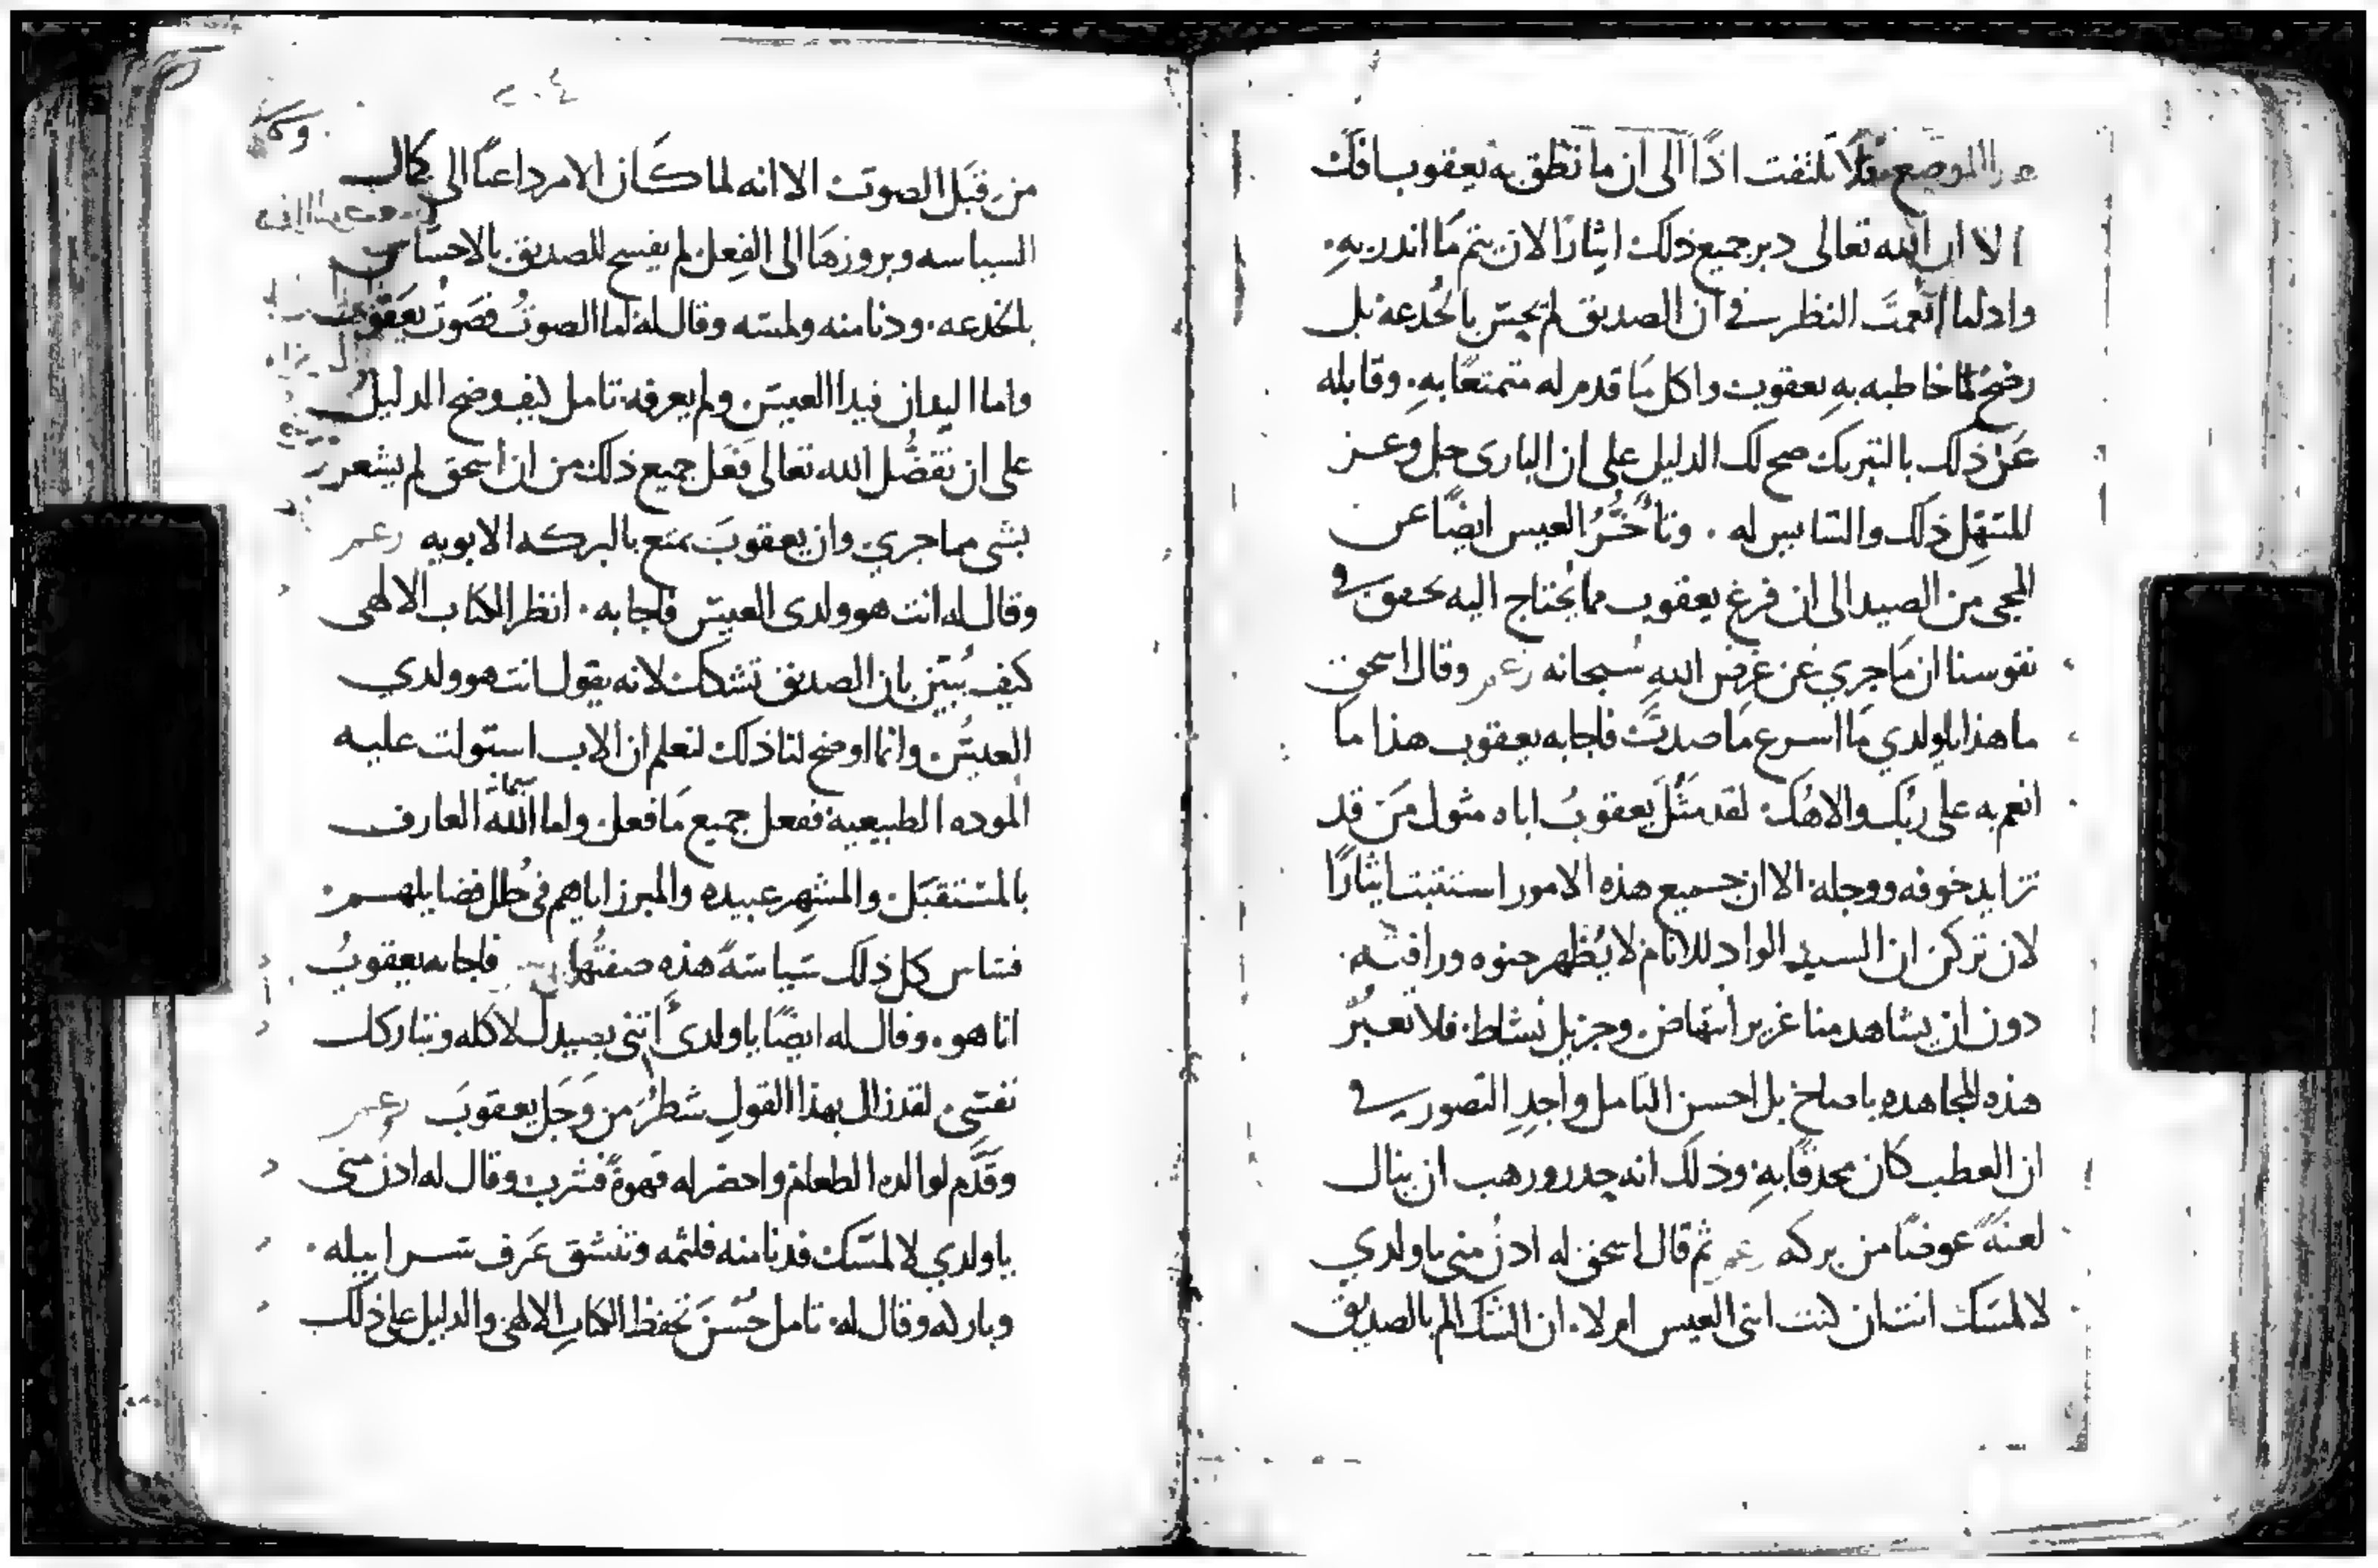 الموضع فلا تلتفت اذًا الى ان ما نطق به يعقوب افك
الا ان الله تعالى دبر جميع ذلك ايثارًا لان يتم ما اندر به.
واد لما انعمت النظر في ان الصديق لم يحس بالخدعه بل
رضخ لما خاطبه به يعقوب واكل ما قدم له متمتعًا به. وقابله
عن ذلك بالتبريك صح لك الدليل على ان البارى جل وعز
المسهل ذلك والسايس له . وتاخُّرُ العيس ايضًا عن
المجى من الصيد الى ان فرغ يعقوب مما يحتاج اليه يحقق في
نفوسنا ان ما جري عن غرض الله سبحانه وقال اسحق
ما هذا ياولدي ما اسرع ما صدت فاجابه يعقوب هذا ما
انعم به على ربك والاهك. لقد مثل يعقوبُ اباه مثول من قد
تزايد خوفه ووجله. الا ان جميع هذه الامور استتبت ايثارًا
لان تركن ان السيد الواد للانام لا يُظهر حنوه ورافته.
دون ان يشاهد منا غزير انتهاض وجزيل نشاط. فلا تعبُر
هذه المجاهده ياصاح بل احسن التامل واجدِ التصور في
ان العطب كان محدقًا به. وذلك انه حدر ورهب ان ينال
لعنهً عوضًا من بركه ثم قال اسحق له ادنُ مني ياولدي
لالمسك انت ان كنت ابنى العيس ام لا. ان الشك الم بالصديق
من قبَل الصوت الا انه لما كان الامر داعيًا الى كمال
السياسه وبروزها الى الفِعل لم يفسح للصديق بالاحساس
بالخدعه. ودنا منه ولمسه وقال له اما الصوتُ فصوتُ يعقوب
واما اليدان فيدا العيس ولم يعرفه. تامل كيف وضح الدليل
على ان تفضُّل الله تعالى فعَل جميع ذلك من ان اسحق لم يشعر
بشى مما جري وان يعقوبَ تمتع بالبركه الابويه
وقال له انت هو ولدى العيس فاجابه . انظر الكتاب الالاهى
كيف يُبيّن بان الصديق تشكك لانه يقول انت هو ولدي
العيس وانما اوضح لنا ذلك لنعلم ان الاب استولت عليه
الموده الطبيعية ففعل جميع ما فعل. واما الله سبحانه العارف
بالمستقبَل والمشهِر عبيده والمبرز اياهم في حُلل فضايلهم.
فساس كل ذلك سياسةً هذه صفتُها فاجابه يعقوبُ
انا هو. وقال له ايضًا ياولدى ائتنى بصيدك لاكله وتباركك
نفسي. لقد زال بهذا القولِ شطرٌ من وَجَل يعقوبَ
وقَدَّم لوالده الطعام واحضر له قهوةً فشرب وقال له ادن منى
ياولدي لالمسك فدنا منه فلثمه وتنشق عَرف سرابيله.
وبارك له وقال له. تامل حُسنَ تحفظ الكتابِ الالاهى والدليل على ذلك